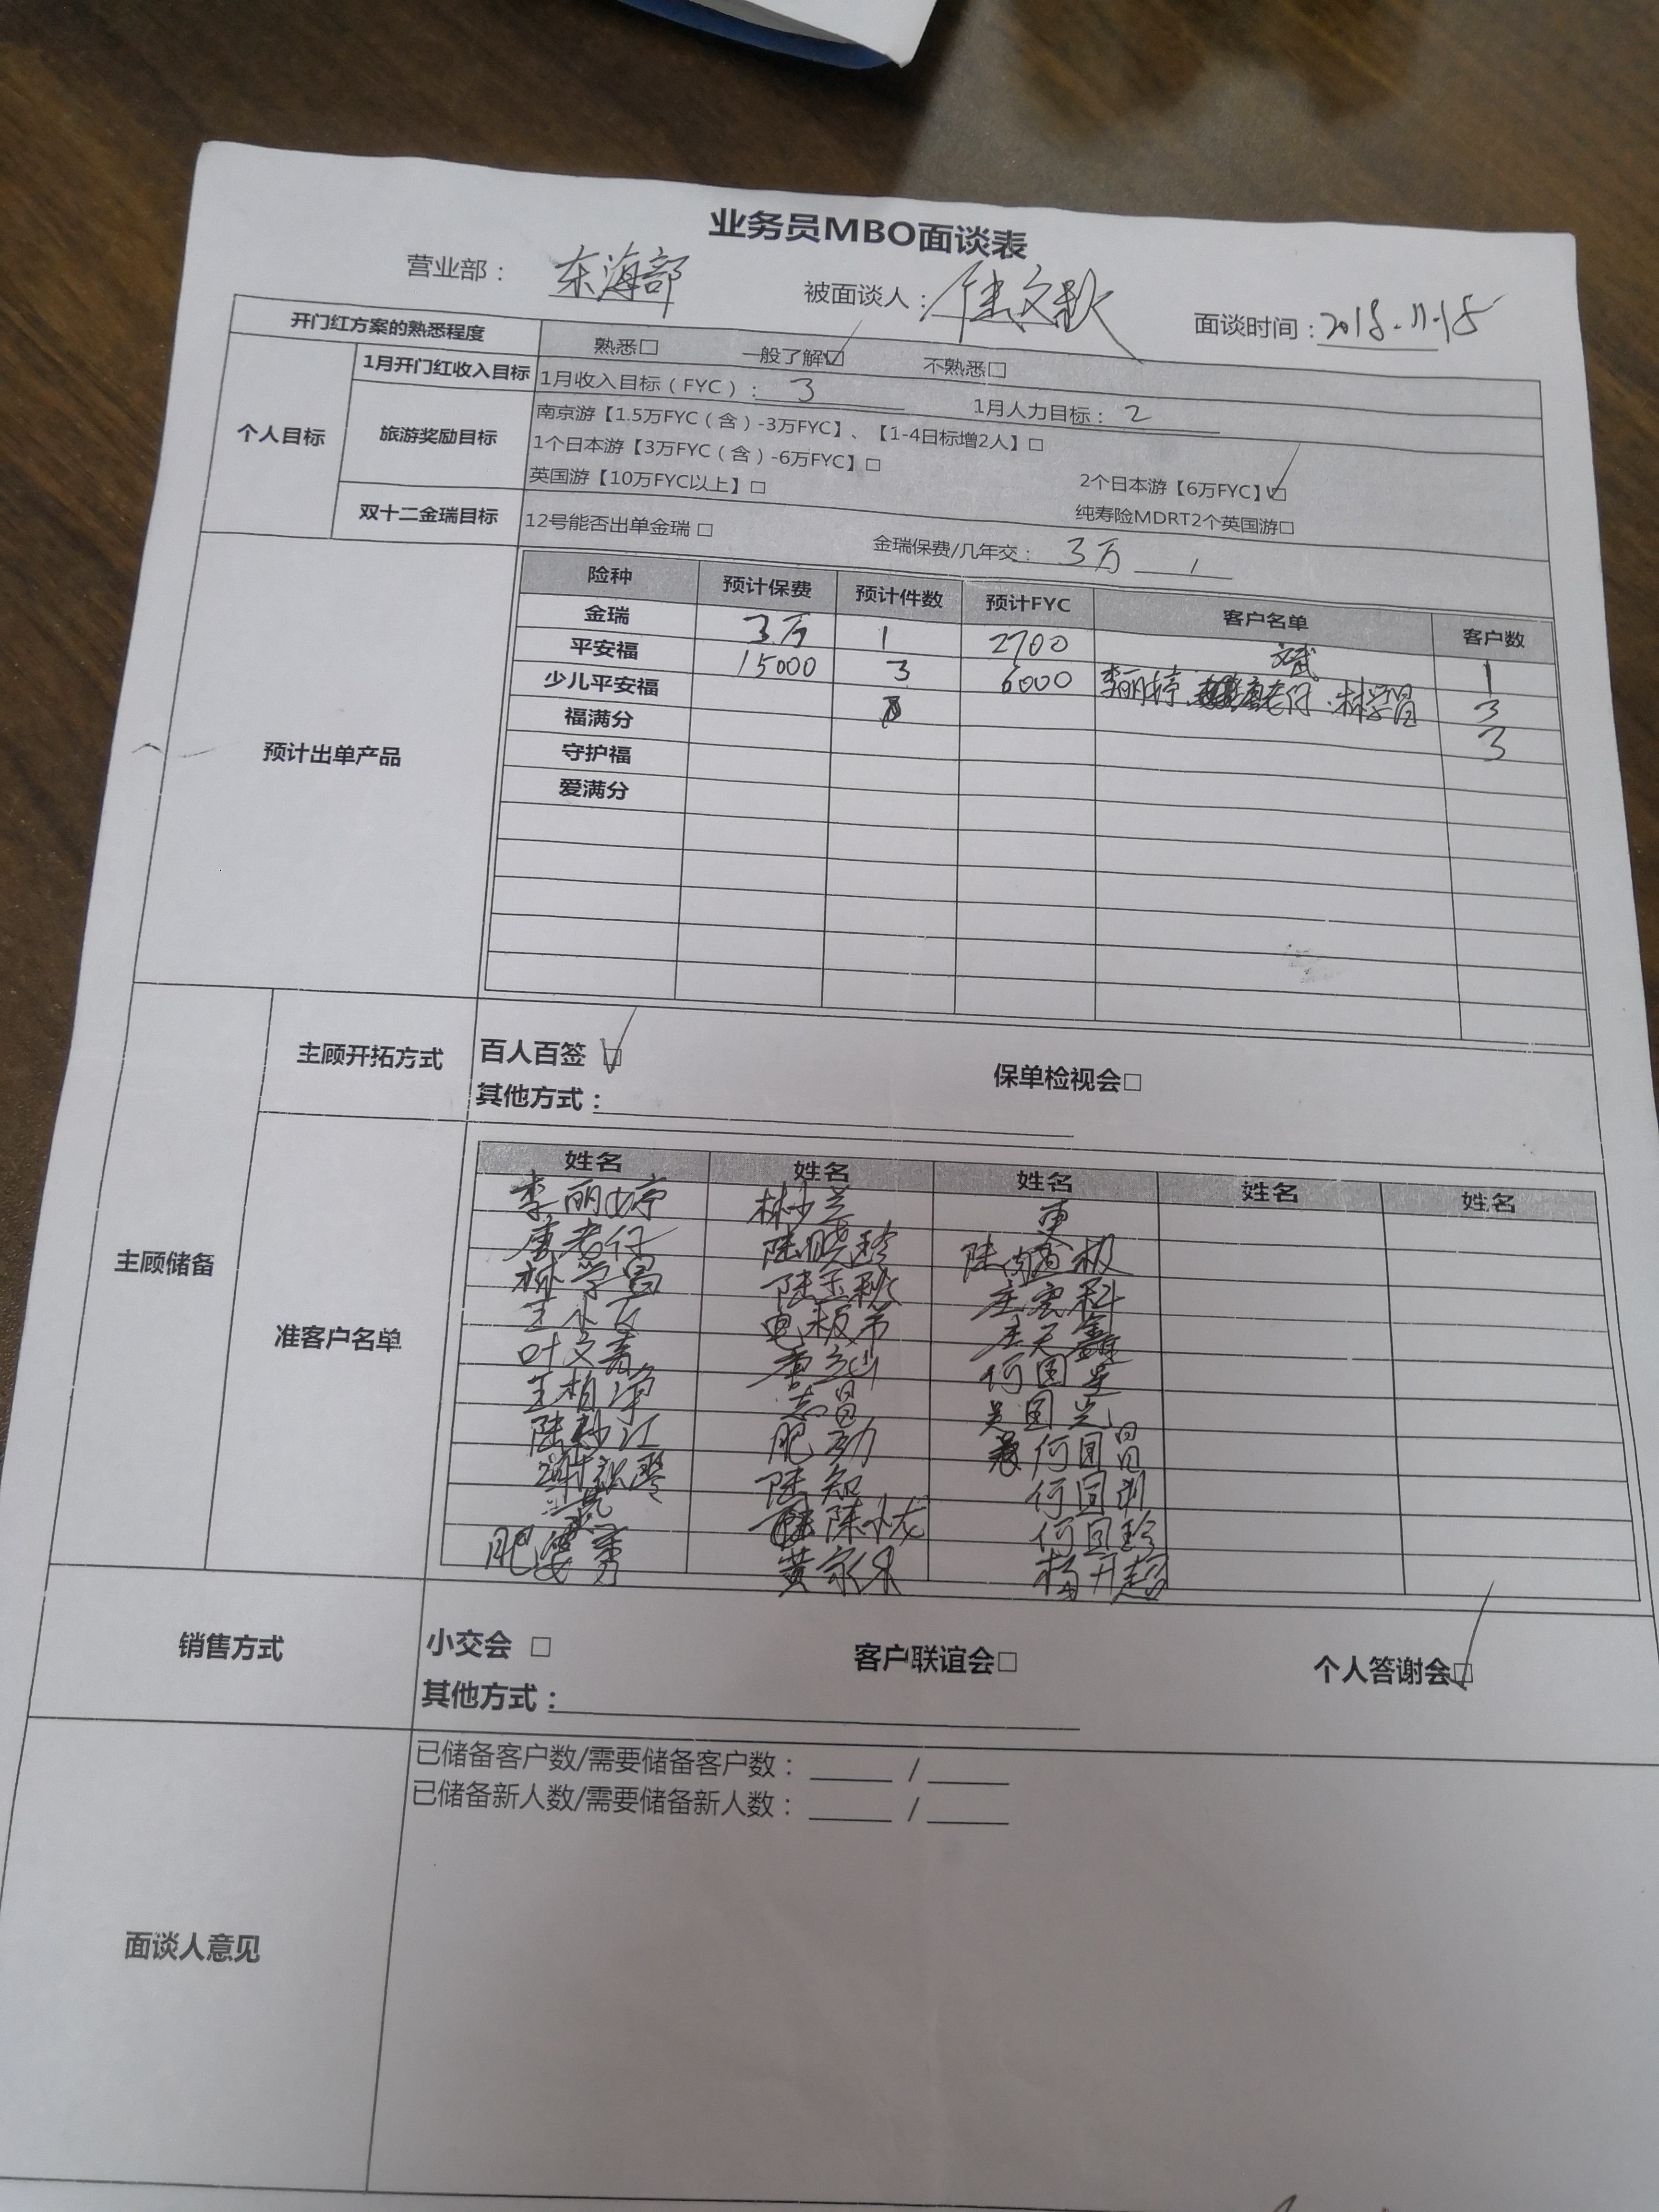 业务员MBO面谈表
营业部： 东海部 被面谈人： 面谈时间：2018.11.15
开门红方案的熟悉程度 熟悉□ 一般了解☑ 不熟悉□
个人目标
1月开门红收入目标 1月收入目标（FYC）： 3 1月人力目标：2
旅游奖励目标
南京游【1.5万FYC（含）-3万FYC】、【1-4日标增2人】□
1个日本游【3万FYC（含）-6万FYC】□ 2个日本游【6万FYC】☑
英国游【10万FYC以上】□ 纯寿险MDRT2个英国游□
双十二金瑞目标 12号能否出单金瑞 □ 金瑞保费/几年交： 3万 1
预计出单产品
险种 预计保费 预计件数 预计FYC 客户名单 客户数
金瑞 3万 1 2700 文武 1
平安福 15000 3 6000 李丽婷 唐老仔 林学昌 3
少儿平安福 3
福满分
守护福
爱满分
主顾储备
主顾开拓方式 百人百签 ☑ 保单检视会□
其他方式：
准客户名单
姓名 姓名 姓名 姓名 姓名
李丽婷 林少芸
唐老仔 陆晓玲
林学昌 陆玉秋
王小
叶文青 庄天鑫
志昌
肥 何国昌
陆知
陈小龙 何国珍
肥 黄家 杨开超
销售方式 小交会 □ 客户联谊会□ 个人答谢会☑
其他方式：
面谈人意见
已储备客户数/需要储备客户数： /
已储备新人数/需要储备新人数： /